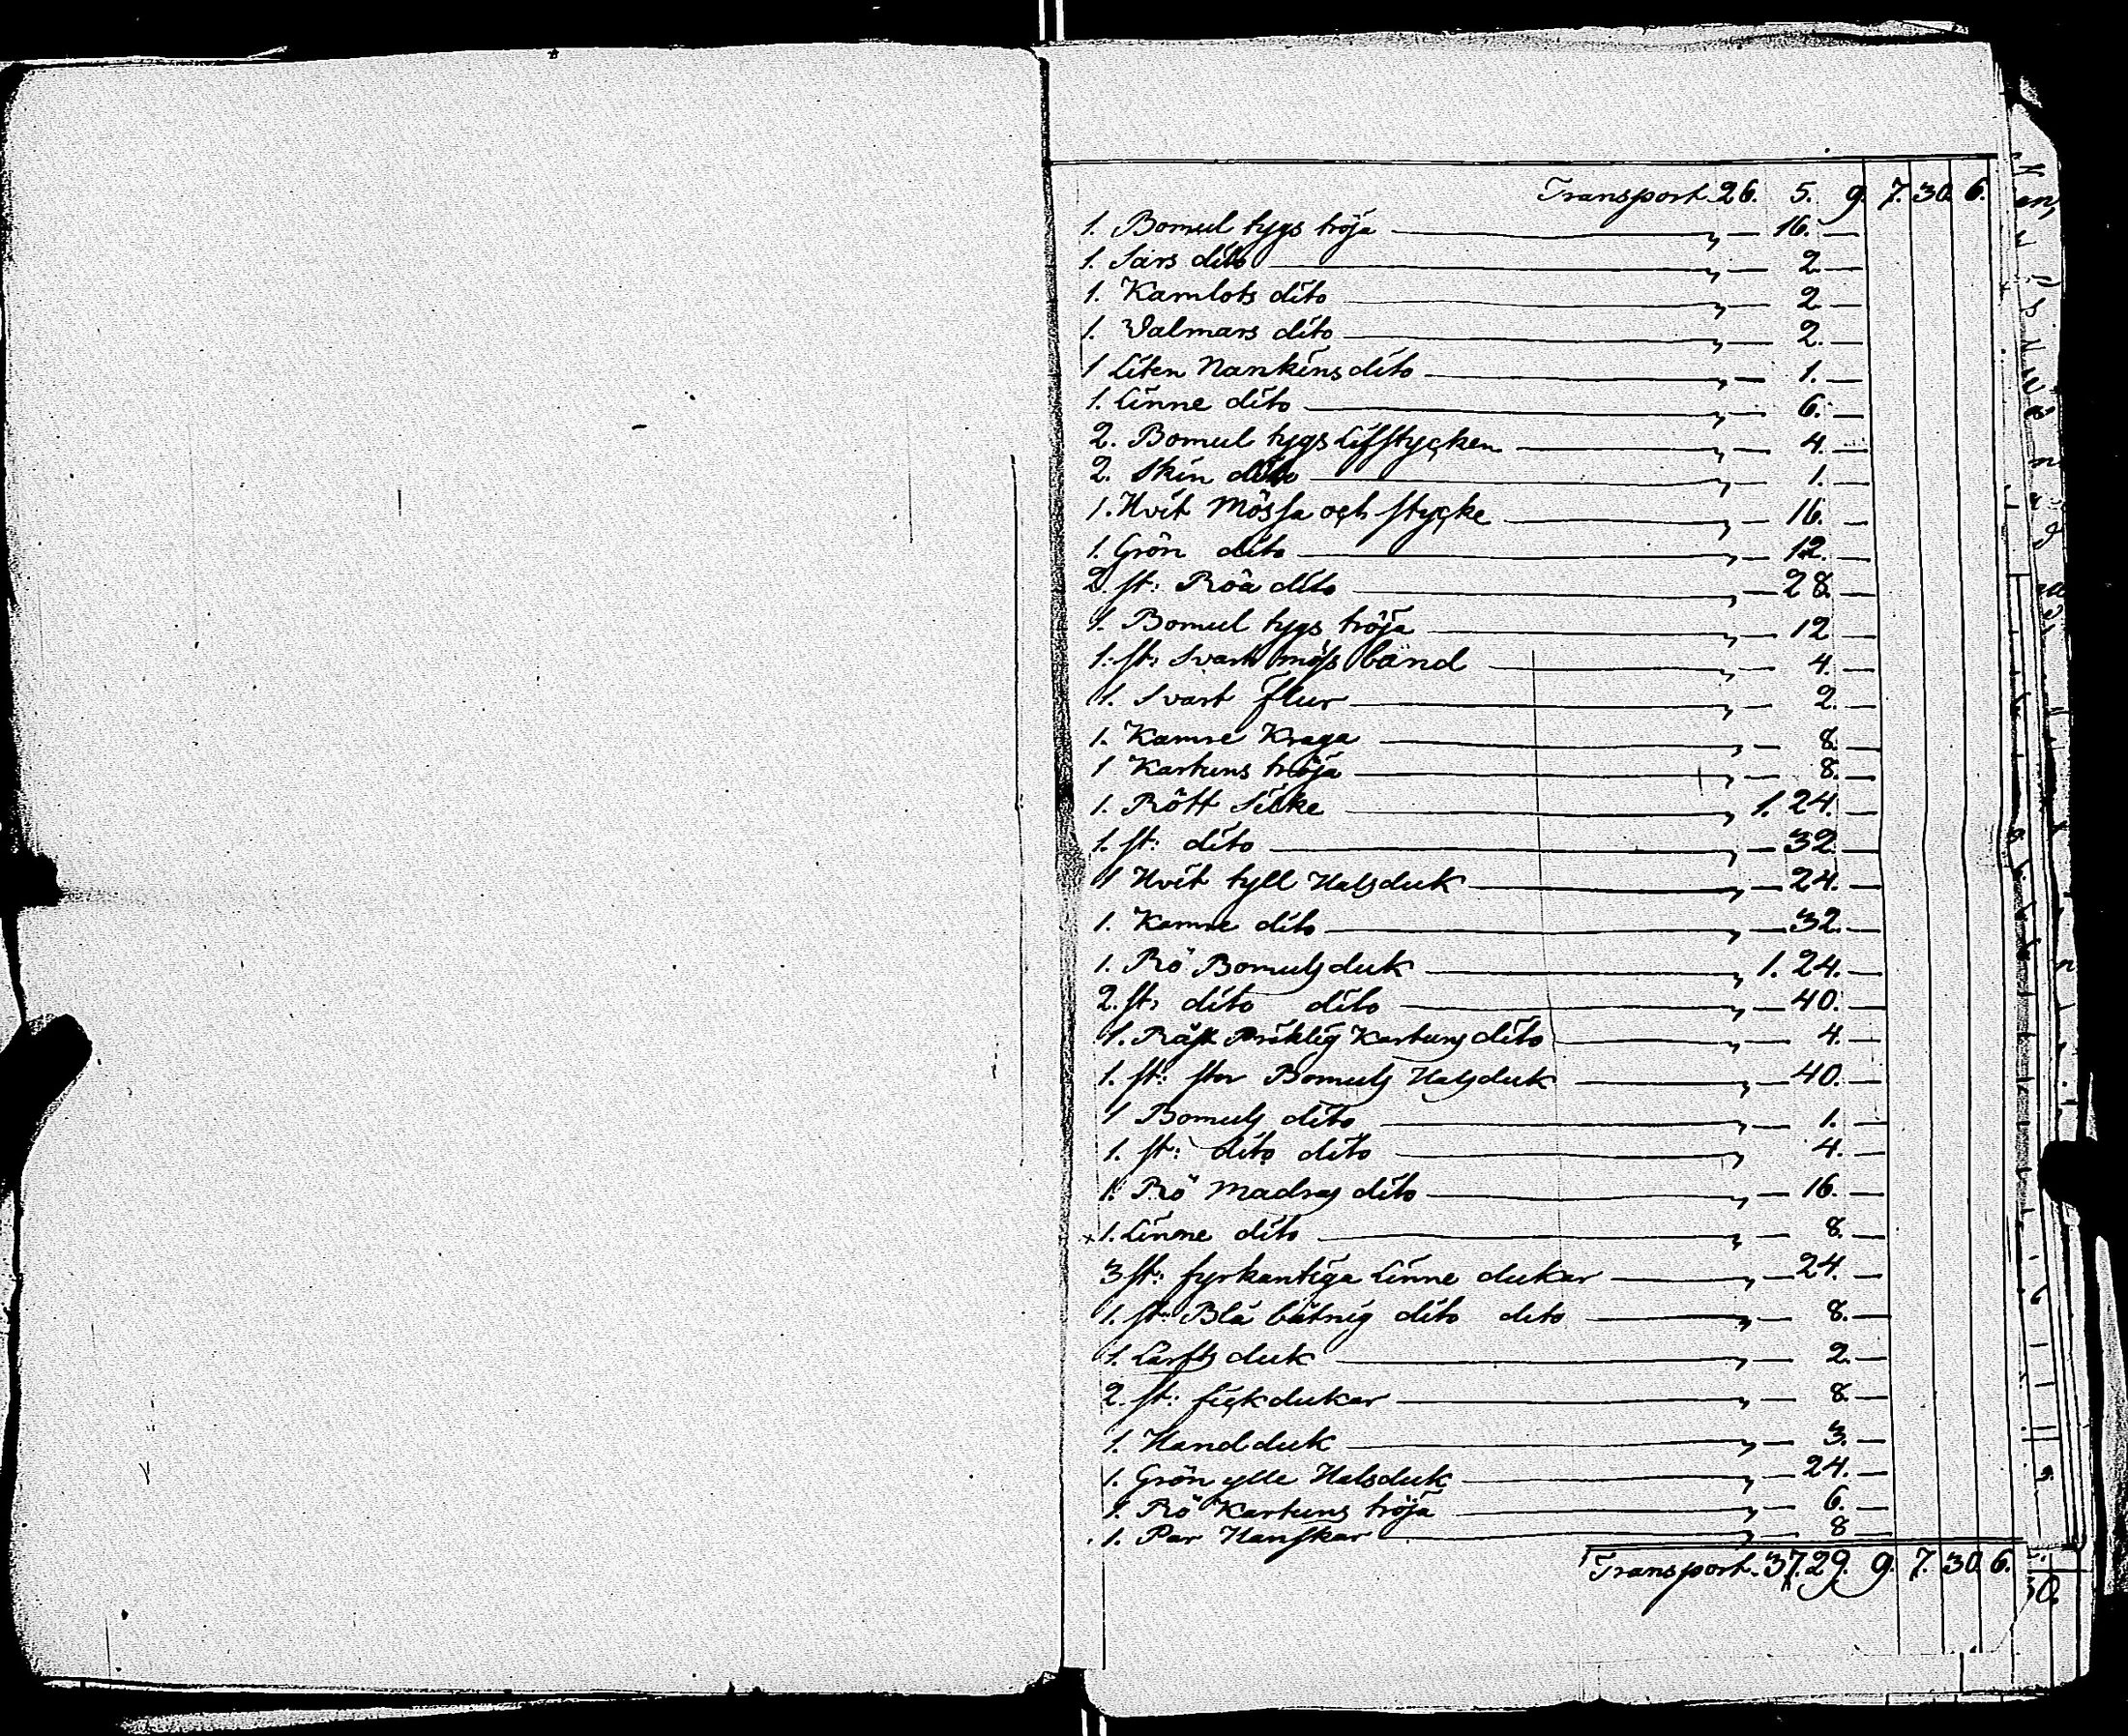 Transport 26. 5. 9. 7. 30. 6.
1. Bomul tygs tröja „ — 16. —
1. Sars dito „ — 2 —
1. Kamlots dito „ — 2 —
1. Valmars dito „ — 2. —
1 Liten Nankins dito „ — 1. —
1. Linne dito „ — 6. —
2. Bomul tygs Lifstycken „ — 4. —
2. Skin dito „ — 1. —
1. Hvit Mössa och stycke „ — 16. —
1. Grön dito „ — 12. —
2. st: Röa dito „ — 28. —
1. Bomul tygs tröja „ — 12 —
1. st: Svart möss band „ — 4. —
1. Svart flur „ — 2. —
1. Kamre Kraga „ — 8. —
1 Kartuns tröja „ — 8. —
1. Rött Silke 1. 24. —
1. st: dito „ — 32 —
1 Hvit tyll Halsduk „ — 24. —
1. Kamre dito „ — 32. —
1. Rö Bomulsduk 1. 24. —
2. st: dito dito „ — 40. —
1. Kartuns dito „ — 4. —
1. st: stor Bomuls Halsduk „ — 40. —
1 Bomuls dito „ — 1. —
1. st: dito dito „ — 4. —
1. Rö Madras dito „ — 16. —
1. Linne dito „ — 8. —
3 st: fyrkantiga Linne dukar „ — 24. —
1. st: Blå båtnig dito dito „ — 8. —
1. Lärfts duk „ — 2. —
2. st: fickdukar „ — 8. —
1. Handduk „ — 3. —
1. Grön ylle Halsduk „ — 24. —
1. Rö Kartuns tröja „ — 6. —
1. Par Hanskar „ — 8 —
Transport. 37. 29. 9. 7. 30. 6.